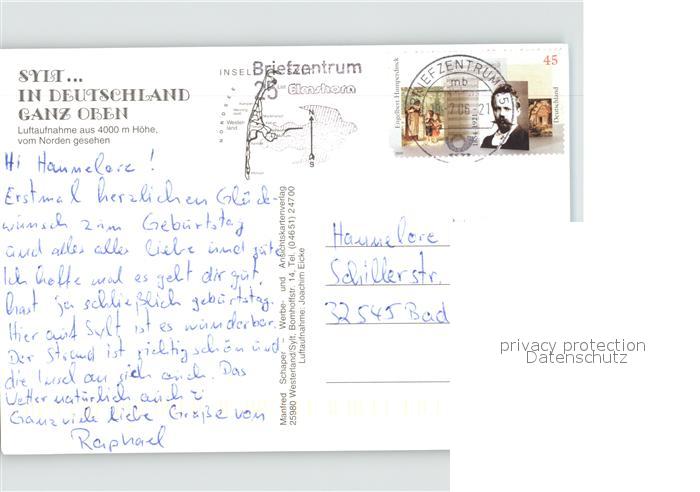 SYLT...
IN DEUTSCHLAND
GANZ OBEN
Luftaufnahme aus 4000 m Höhe,
vom Norden gesehen
INSEL
NORDSEE
Westerland
N
S
Briefzentrum
25
Elmshorn
BRIEFZENTRUM
mb
25
Engelbert Humperdinck
45
Deutschland
Hi Hannelore!
Erstmal herzlichen Glück-
wunsch zum Geburtstag
und alles alles liebe und gute
Ich hoffe mal es geht dir gut,
hast ja schließlich geburtstag.
Hier auf Sylt ist es wunderbar.
Der Strand ist richtig schön und
die Insel an sich auch. Das
Wetter natürlich auch
Ganz viele liebe Grüße von
Raphael
Manfred Schaper Werbe- und Ansichtskartenverlag
25980 Westerland/Sylt, Bomhoffstr. 14, Tel. (04651) 24700
Luftaufnahme: Joachim Eicke
Hannelore
Schillerstr.
32545 Bad
privacy protection
Datenschutz